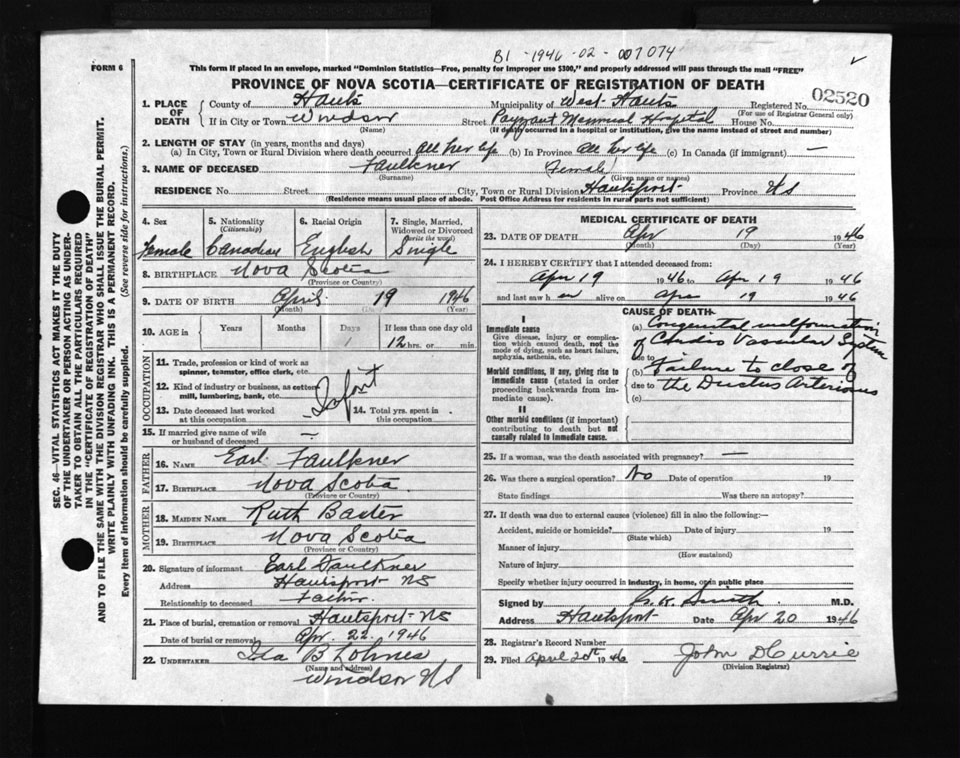 B1 - 1946 - 02 - 007074
FORM 6
This form if placed in an envelope, marked "Dominion Statistics—Free, penalty for improper use $300," and properly addressed will pass through the mail "FREE"
PROVINCE OF NOVA SCOTIA—CERTIFICATE OF REGISTRATION OF DEATH
SEC. 46—VITAL STATISTICS ACT MAKES IT THE DUTY
OF THE UNDERTAKER OR PERSON ACTING AS UNDER-
TAKER TO OBTAIN ALL THE PARTICULARS REQUIRED
IN THE "CERTIFICATE OF REGISTRATION OF DEATH"
AND TO FILE THE SAME WITH THE DIVISION REGISTRAR WHO SHALL ISSUE THE BURIAL PERMIT.
WRITE PLAINLY WITH UNFADING INK. THIS IS A PERMANENT RECORD.
Every item of information should be carefully supplied. (See reverse side for instructions.)
1. PLACE OF DEATH County of Hants Municipality of West-Hants Registered No. 02520
(For use of Registrar General only)
If in City or Town Windsor Street Payzant Memorial Hospital House No.
(Name) (If death occurred in a hospital or institution, give the name instead of street and number)
2. LENGTH OF STAY (in years, months and days)
(a) In City, Town or Rural Division where death occurred All her life (b) In Province All her life (c) In Canada (if immigrant) —
3. NAME OF DECEASED Faulkner Female
(Surname) (Given name or names)
RESIDENCE No. Street City, Town or Rural Division Hantsport Province NS
(Residence means usual place of abode. Post Office Address for residents in rural parts not sufficient)
4. Sex
Female
5. Nationality
(Citizenship)
Canadian
6. Racial Origin
English
7. Single, Married,
Widowed or Divorced
(write the word)
Single
8. BIRTHPLACE Nova Scotia
(Province or Country)
9. DATE OF BIRTH April 19 1946
(Month) (Day) (Year)
10. AGE in Years Months Days If less than one day old
1 12 hrs. or min.
OCCUPATION
11. Trade, profession or kind of work as
spinner, teamster, office clerk, etc.
12. Kind of industry or business, as cotton
mill, lumbering, bank, etc.
Infant
13. Date deceased last worked
at this occupation
14. Total yrs. spent in
this occupation
15. If married give name of wife
or husband of deceased —
FATHER
16. NAME Earl Faulkner
17. BIRTHPLACE Nova Scotia
(Province or Country)
MOTHER
18. MAIDEN NAME Ruth Baxter
19. BIRTHPLACE Nova Scotia
(Province or Country)
20. Signature of informant Earl Faulkner
Address Hantsport NS
Relationship to deceased Father
21. Place of burial, cremation or removal Hantsport-NS
Date of burial or removal Apr. 22. 1946
22. UNDERTAKER Ida B Lohnes
(Name and address)
Windsor NS
MEDICAL CERTIFICATE OF DEATH
23. DATE OF DEATH Apr 19 1946
(Month) (Day) (Year)
24. I HEREBY CERTIFY that I attended deceased from:
Apr 19 1946 to Apr 19 1946
and last saw her alive on Apr 19 1946
CAUSE OF DEATH
I
Immediate cause
Give disease, injury or complica-
tion which caused death, not the
mode of dying, such as heart failure,
asphyxia, asthenia, etc.
(a) Congenital malformation
of Cardio Vascular System
due to
Morbid conditions, if any, giving rise to
immediate cause (stated in order
proceeding backwards from im-
mediate cause).
(b) Failure to close of
due to the Ductus Arteriosus
(c)
II
Other morbid conditions (if important)
contributing to death but not
causally related to immediate cause.
25. If a woman, was the death associated with pregnancy? —
26. Was there a surgical operation? No Date of operation 19
State findings Was there an autopsy?
27. If death was due to external causes (violence) fill in also the following:—
Accident, suicide or homicide? Date of injury 19
(State which)
Manner of injury
(How sustained)
Nature of injury
Specify whether injury occurred in industry, in home, or in public place
Signed by Smith M.D.
Address Hantsport Date Apr 20 1946
28. Registrar's Record Number
29. Filed April 20th 1946 John D Currie
(Division Registrar)